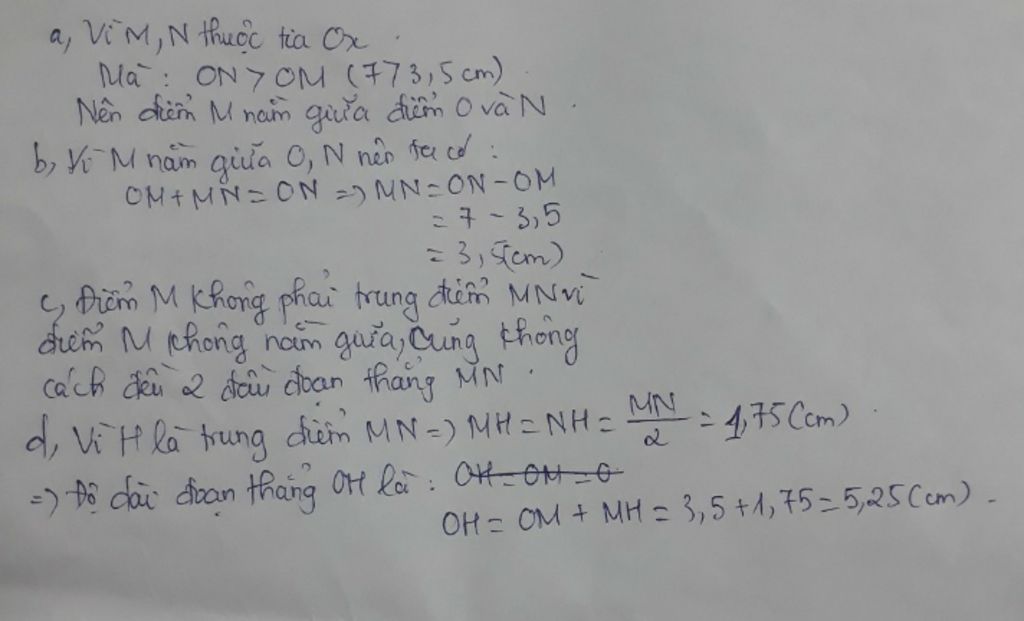 a, Vì M, N thuộc tia Ox.
Mà: ON > OM (7 > 3,5 cm)
Nên điểm M nằm giữa điểm O và N.
b, Vì M nằm giữa O, N nên ta có:
OM + MN = ON => MN = ON - OM
= 7 - 3,5
= 3,5(cm)
c, Điểm M không phải trung điểm MN vì
điểm M không nằm giữa, cũng không
cách đều 2 đầu đoạn thẳng MN.
d, Vì H là trung điểm MN => MH = NH = MN/2 = 1,75 (cm).
=> Độ dài đoạn thẳng OH là: OH - OM = O
OH = OM + MH = 3,5 + 1,75 = 5,25 (cm).